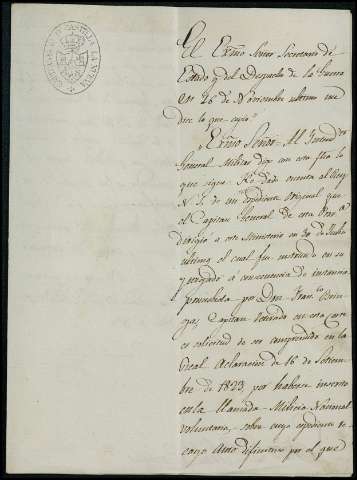 CAPITANIA G. DE CASTILLA LA NUEVA
El Exmo Señor Secretario de
Estado y del Despacho de la Guerra
en 26 de Noviembre ultimo me
dice lo que copio"
"Exmo Señor = Al Intendte
General Militar digo con esta fha lo
que sigue = He dado cuenta al Rey
N. S. de un espediente original que
el Capitan General de esta Prova
dirigió a este Ministerio en 30 de Julio
ultimo, el cual fue instruido en su
Juzgado a consecuencia de instancia
promovida por Don Franco
Capitan retirado en esta Corte
en solicitud de ser comprendido en la
Real Aclaracion de 16 de Setiem-
bre de 1823, por haberse inscrito
en la llamada Milicia Nacional
voluntaria, sobre cuyo espediente re-
cayó Auto difinitivo por el que